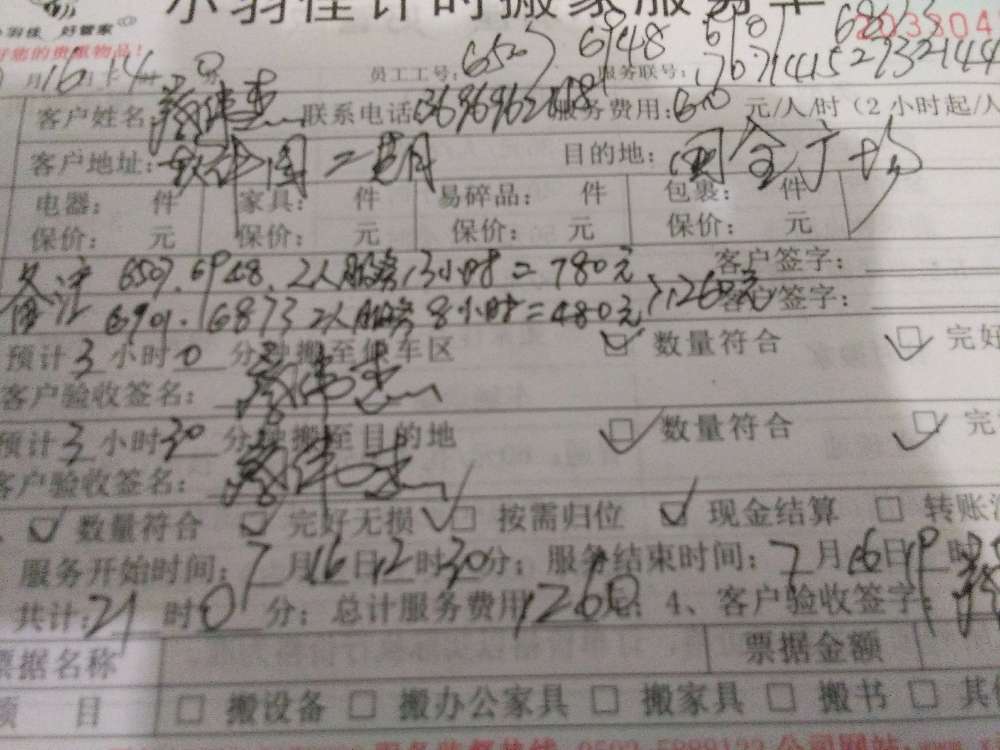 小羽佳计时搬家服务单
小羽佳 好管家
好您的贵重物品！
2033804
月16日14 员工工号：6507 6948 6901 6873
服务联号：
客户姓名： 联系电话 服务费用：60 元/人/时（2小时起/人
客户地址：软件园二期 目的地：国金广场
电器： 件 家具： 件 易碎品： 件 包裹： 件
保价： 元 保价： 元 保价： 元 保价： 元
备注 6507.6948.2人服务13小时=780元 客户签字：
备注 6901.6873 2人服务8小时=480元 1260元 客户签字：
预计3小时0分钟搬至停车区 数量符合 完好
客户验收签名：
预计3小时30分钟搬至目的地 数量符合 完
客户验收签名：
数量符合 完好无损 按需归位 现金结算 转账
服务开始时间：7月16日12时30分；服务结束时间：7月16日19时
共计：21时0分；总计服务费用1260元；4、客户验收签字：
票据名称 票据金额
项 目 搬设备 搬办公家具 搬家具 搬书 其